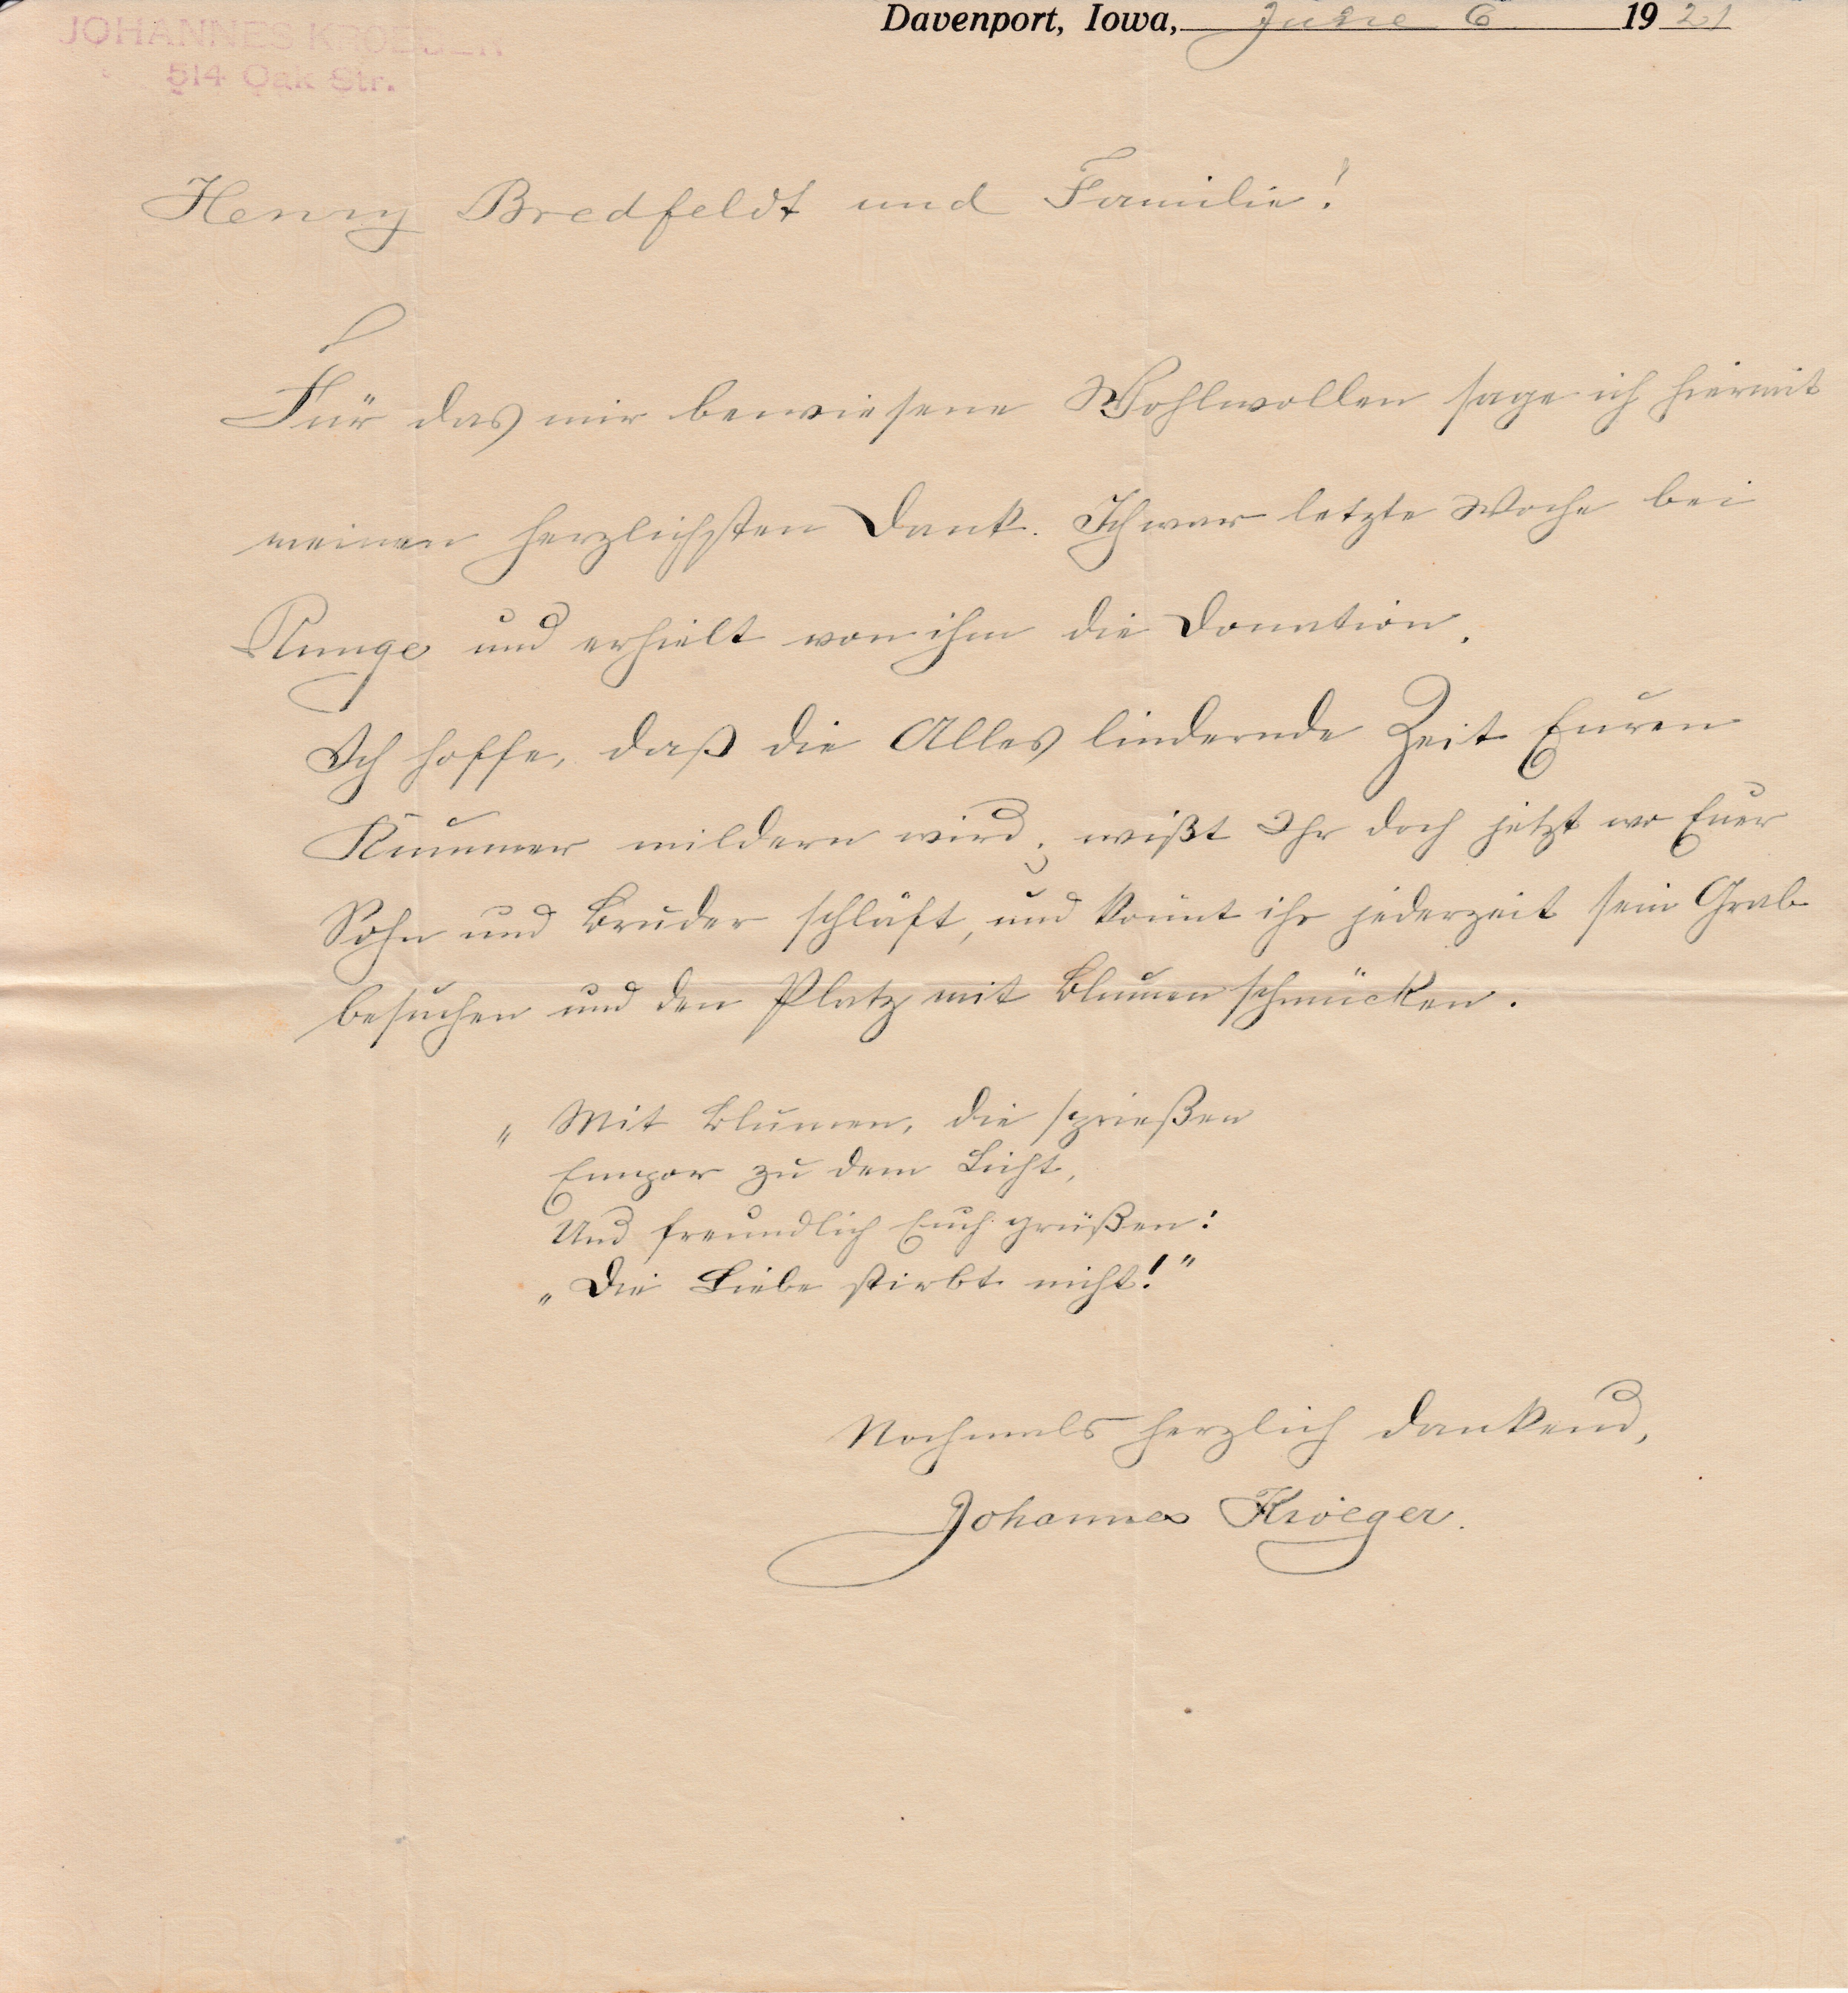 JOHANNES KROEGER
514 Oak Str.
Davenport, Iowa, June 6 1921
Henry Bredfeldt und Familie!
Für das mir bewiesene Wohlwollen sage ich hiermit
meinen herzlichsten Dank. Ich war letzte Woche bei
Runge und erhielt von ihm die Donation.
Ich hoffe, daß die Alles lindernde Zeit Euren
Kummer mildern wird; wißt Ihr doch jetzt wo Euer
Sohn und Bruder schläft, und könnt ihr jederzeit sein Grab
besuchen und den Platz mit Blumen schmücken.
„Mit Blumen, die sprießen
Empor zu dem Licht,
Und freundlich Euch grüßen:
„Die Liebe stirbt nicht!"
Nochmals herzlich dankend,
Johannes Kroeger.